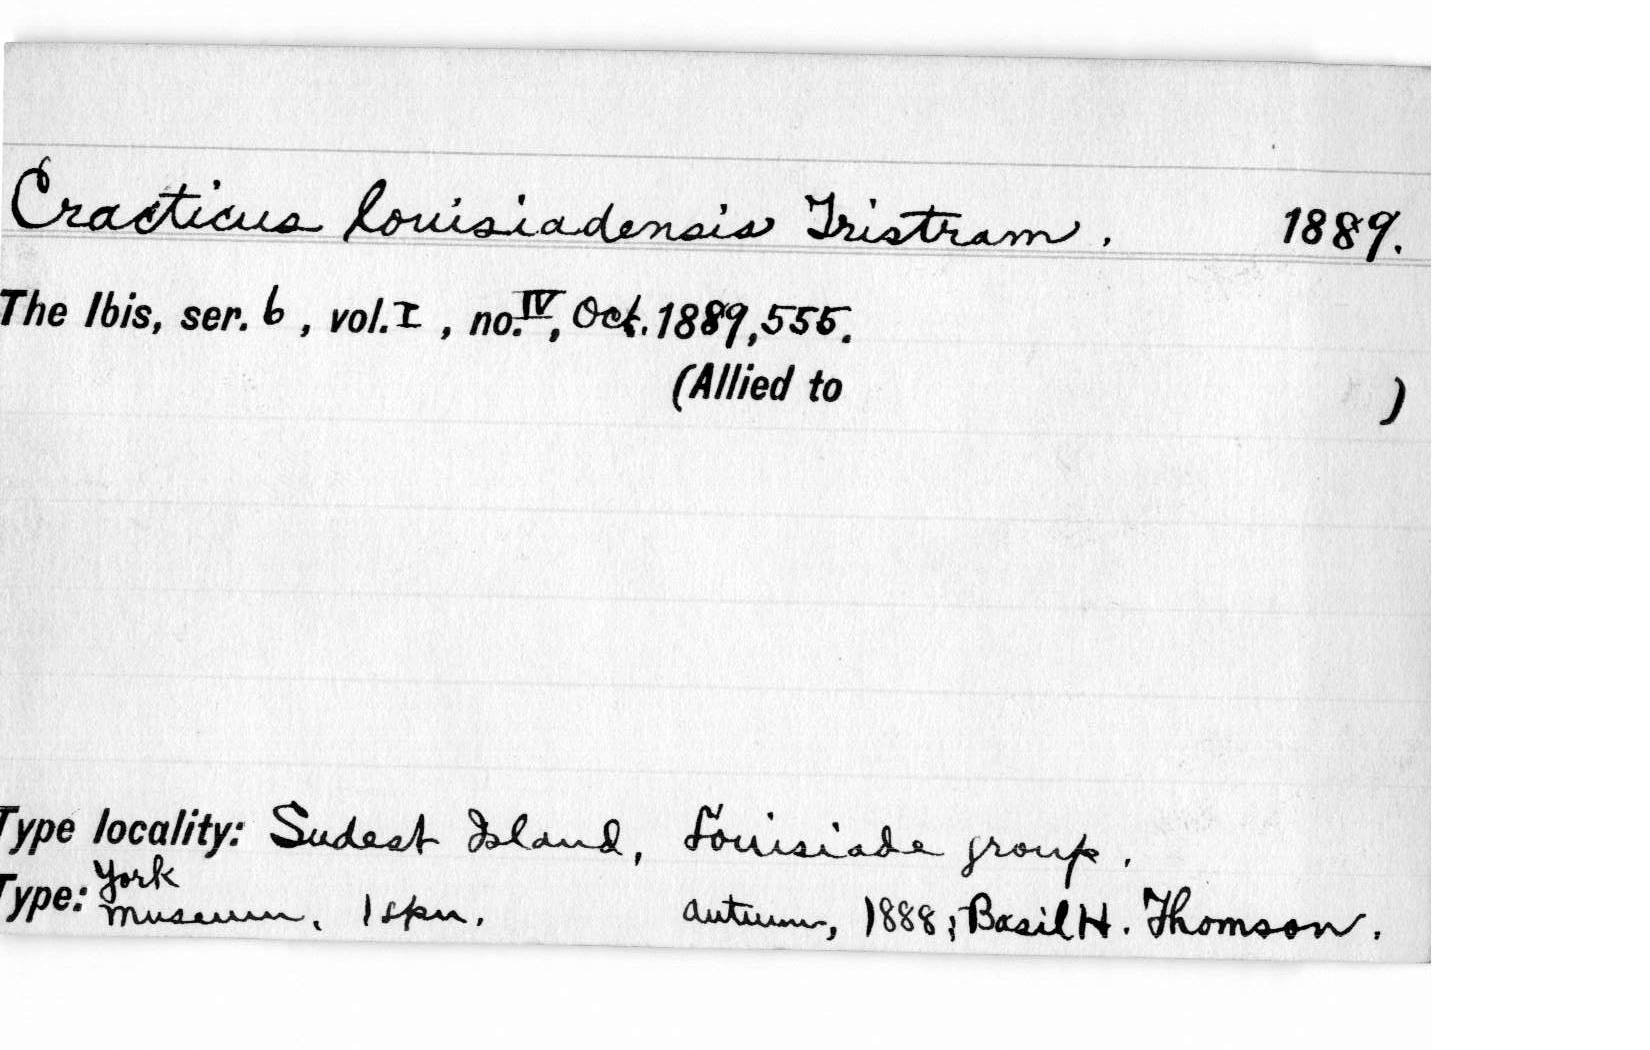 Cracticus louisiadensis Tristram. 1889.
The Ibis, ser. 6, vol. I, no. IV, Oct. 1889, 555.
(Allied to )
Type locality: Sudest Island, Louisiade group.
Type: York Museum. 1 spn. autumn, 1888; Basil H. Thomson.